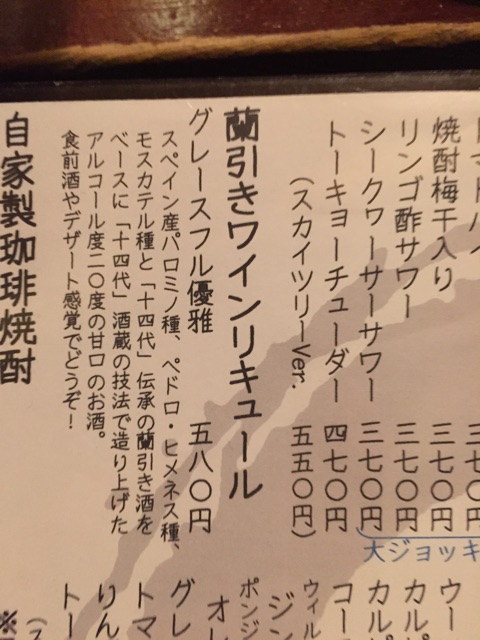 トマトハイ 三七〇円
焼酎梅干入り 三七〇円
リンゴ酢サワー 三七〇円
シークヮーサーサワー 三七〇円
トーキョーチューダー 四七〇円
（スカイツリーVer. 五五〇円）
大ジョッキ
蘭引きワインリキュール
グレースフル優雅 五八〇円
スペイン産パロミノ種、ペドロ・ヒメネス種、
モスカテル種と「十四代」伝承の蘭引き酒を
ベースに「十四代」酒蔵の技法で造り上げた
アルコール度二〇度の甘口のお酒。
食前酒やデザート感覚でどうぞ！
自家製珈琲焼酎
ウー
カル
カル
コー
ウィル
ジン
ポンジ
オレ
グレ
トマ
りん
トー
（ス
※